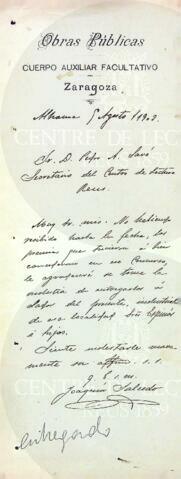 Obras Públicas
CUERPO AUXILIAR FACULTATIVO
Zaragoza
Alhama 5 Agosto 1902.
Sr. D. Pedro A. Savé
Secretario del Centro de Lectura
Reus.
Muy Sr. mio: No habiendo
recibido hasta la fecha, los
premios que tuvieron á bien
concederme en su Concurso,
le agradeceré se tome la
molestia de entregarlos al
dador del presente, industrial
de esa localidad
é hijos.
Siente molestarle nueva-
mente su affmo. s.s.
q. b. s. m.
Joaquin Salcedo
entregado